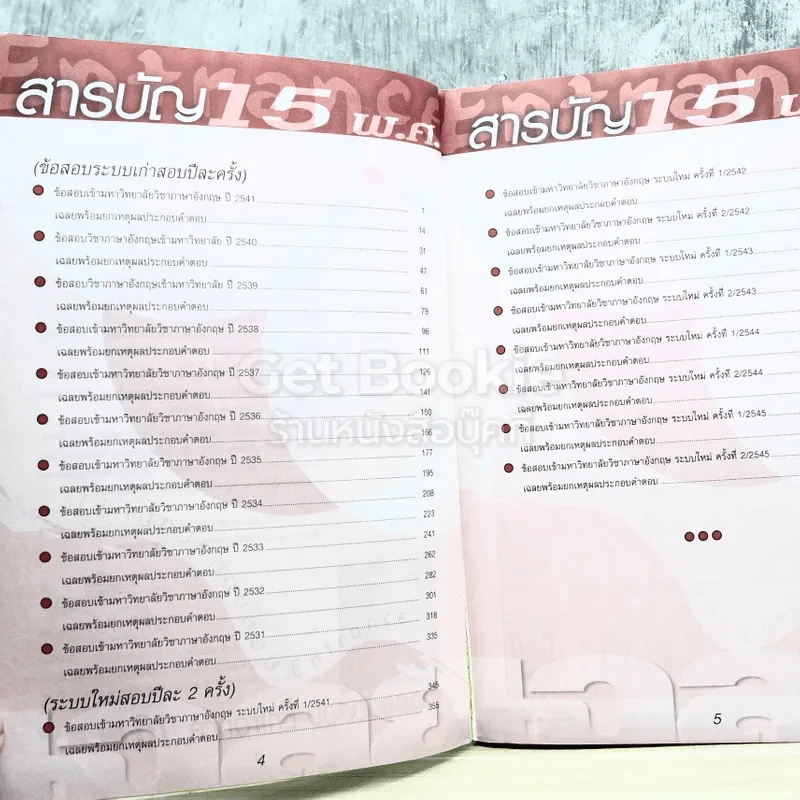 สารบัญ 15 พ.ศ.
(ข้อสอบระบบเก่าสอบปีละครั้ง)
ข้อสอบเข้ามหาวิทยาลัยวิชาภาษาอังกฤษ ปี 2541 1
เฉลยพร้อมยกเหตุผลประกอบคำตอบ 14
ข้อสอบวิชาภาษาอังกฤษเข้ามหาวิทยาลัย ปี 2540 31
เฉลยพร้อมยกเหตุผลประกอบคำตอบ 47
ข้อสอบวิชาภาษาอังกฤษเข้ามหาวิทยาลัย ปี 2539 61
เฉลยพร้อมยกเหตุผลประกอบคำตอบ 79
ข้อสอบเข้ามหาวิทยาลัยวิชาภาษาอังกฤษ ปี 2538 96
เฉลยพร้อมยกเหตุผลประกอบคำตอบ 111
ข้อสอบเข้ามหาวิทยาลัยวิชาภาษาอังกฤษ ปี 2537 126
เฉลยพร้อมยกเหตุผลประกอบคำตอบ 141
ข้อสอบเข้ามหาวิทยาลัยวิชาภาษาอังกฤษ ปี 2536 150
เฉลยพร้อมยกเหตุผลประกอบคำตอบ 166
ข้อสอบเข้ามหาวิทยาลัยวิชาภาษาอังกฤษ ปี 2535 177
เฉลยพร้อมยกเหตุผลประกอบคำตอบ 195
ข้อสอบเข้ามหาวิทยาลัยวิชาภาษาอังกฤษ ปี 2534 208
เฉลยพร้อมยกเหตุผลประกอบคำตอบ 223
ข้อสอบเข้ามหาวิทยาลัยวิชาภาษาอังกฤษ ปี 2533 241
เฉลยพร้อมยกเหตุผลประกอบคำตอบ 262
ข้อสอบเข้ามหาวิทยาลัยวิชาภาษาอังกฤษ ปี 2532 282
เฉลยพร้อมยกเหตุผลประกอบคำตอบ 301
ข้อสอบเข้ามหาวิทยาลัยวิชาภาษาอังกฤษ ปี 2531 318
เฉลยพร้อมยกเหตุผลประกอบคำตอบ 335
(ระบบใหม่สอบปีละ 2 ครั้ง)
ข้อสอบเข้ามหาวิทยาลัยวิชาภาษาอังกฤษ ระบบใหม่ ครั้งที่ 1/2541 345
เฉลยพร้อมยกเหตุผลประกอบคำตอบ 355
4
สารบัญ 15
ข้อสอบเข้ามหาวิทยาลัยวิชาภาษาอังกฤษ ระบบใหม่ ครั้งที่ 1/2542
เฉลยพร้อมยกเหตุผลประกอบคำตอบ
ข้อสอบเข้ามหาวิทยาลัยวิชาภาษาอังกฤษ ระบบใหม่ ครั้งที่ 2/2542
เฉลยพร้อมยกเหตุผลประกอบคำตอบ
ข้อสอบเข้ามหาวิทยาลัยวิชาภาษาอังกฤษ ระบบใหม่ ครั้งที่ 1/2543
เฉลยพร้อมยกเหตุผลประกอบคำตอบ
ข้อสอบเข้ามหาวิทยาลัยวิชาภาษาอังกฤษ ระบบใหม่ ครั้งที่ 2/2543
เฉลยพร้อมยกเหตุผลประกอบคำตอบ
ข้อสอบเข้ามหาวิทยาลัยวิชาภาษาอังกฤษ ระบบใหม่ ครั้งที่ 1/2544
เฉลยพร้อมยกเหตุผลประกอบคำตอบ
ข้อสอบเข้ามหาวิทยาลัยวิชาภาษาอังกฤษ ระบบใหม่ ครั้งที่ 2/2544
เฉลยพร้อมยกเหตุผลประกอบคำตอบ
ข้อสอบเข้ามหาวิทยาลัยวิชาภาษาอังกฤษ ระบบใหม่ ครั้งที่ 1/2545
เฉลยพร้อมยกเหตุผลประกอบคำตอบ
ข้อสอบเข้ามหาวิทยาลัยวิชาภาษาอังกฤษ ระบบใหม่ ครั้งที่ 2/2545
เฉลยพร้อมยกเหตุผลประกอบคำตอบ
5
Get Bookie
ร้านหนังสือบุ๊คกี้